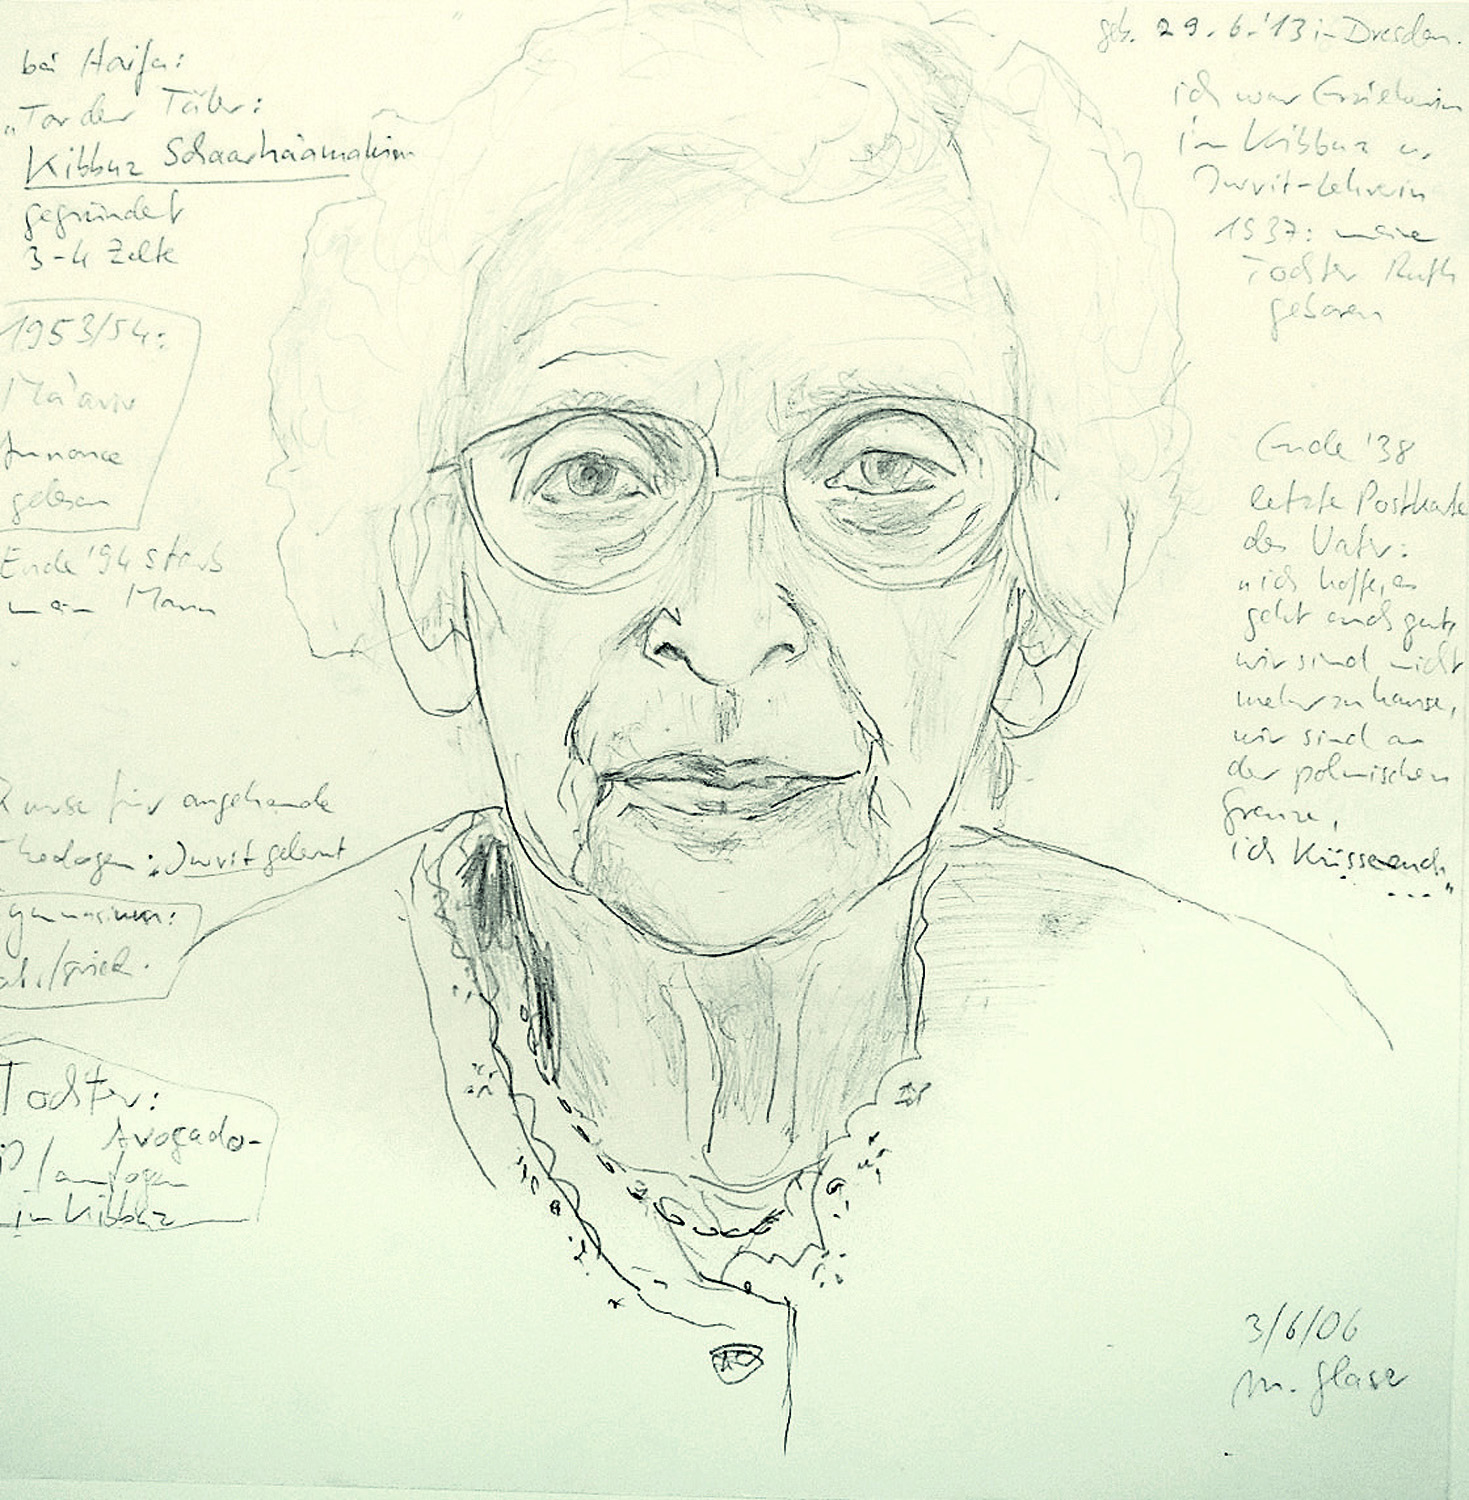 bei Haifa:
"Tor der Täler:
Kibbuz Schaarhaamakim
gegründet
3-4 Zelte
1953/54:
Ma'ariv
Annonce
gelesen
Ende '94 starb
mein Mann
Kurse für angehende
Theologen: Iwrit gelernt
gymnasium:
/griech.
Tochter:
Avogado-
Plantagen
im Kibbuz
geb. 29.6.'13 in Dresden.
ich war Erzieherin
im Kibbuz u.
Iwrit-Lehrerin
1937: meine
Tochter Ruth
geboren
Ende '38
letzte Postkarte
des Vater:
"ich hoffe, es
geht euch gut,
wir sind nicht
mehr zu hause,
wir sind an
der polnischen
Grenze,
ich küsse euch
..."
3/6/06
M. Glaser